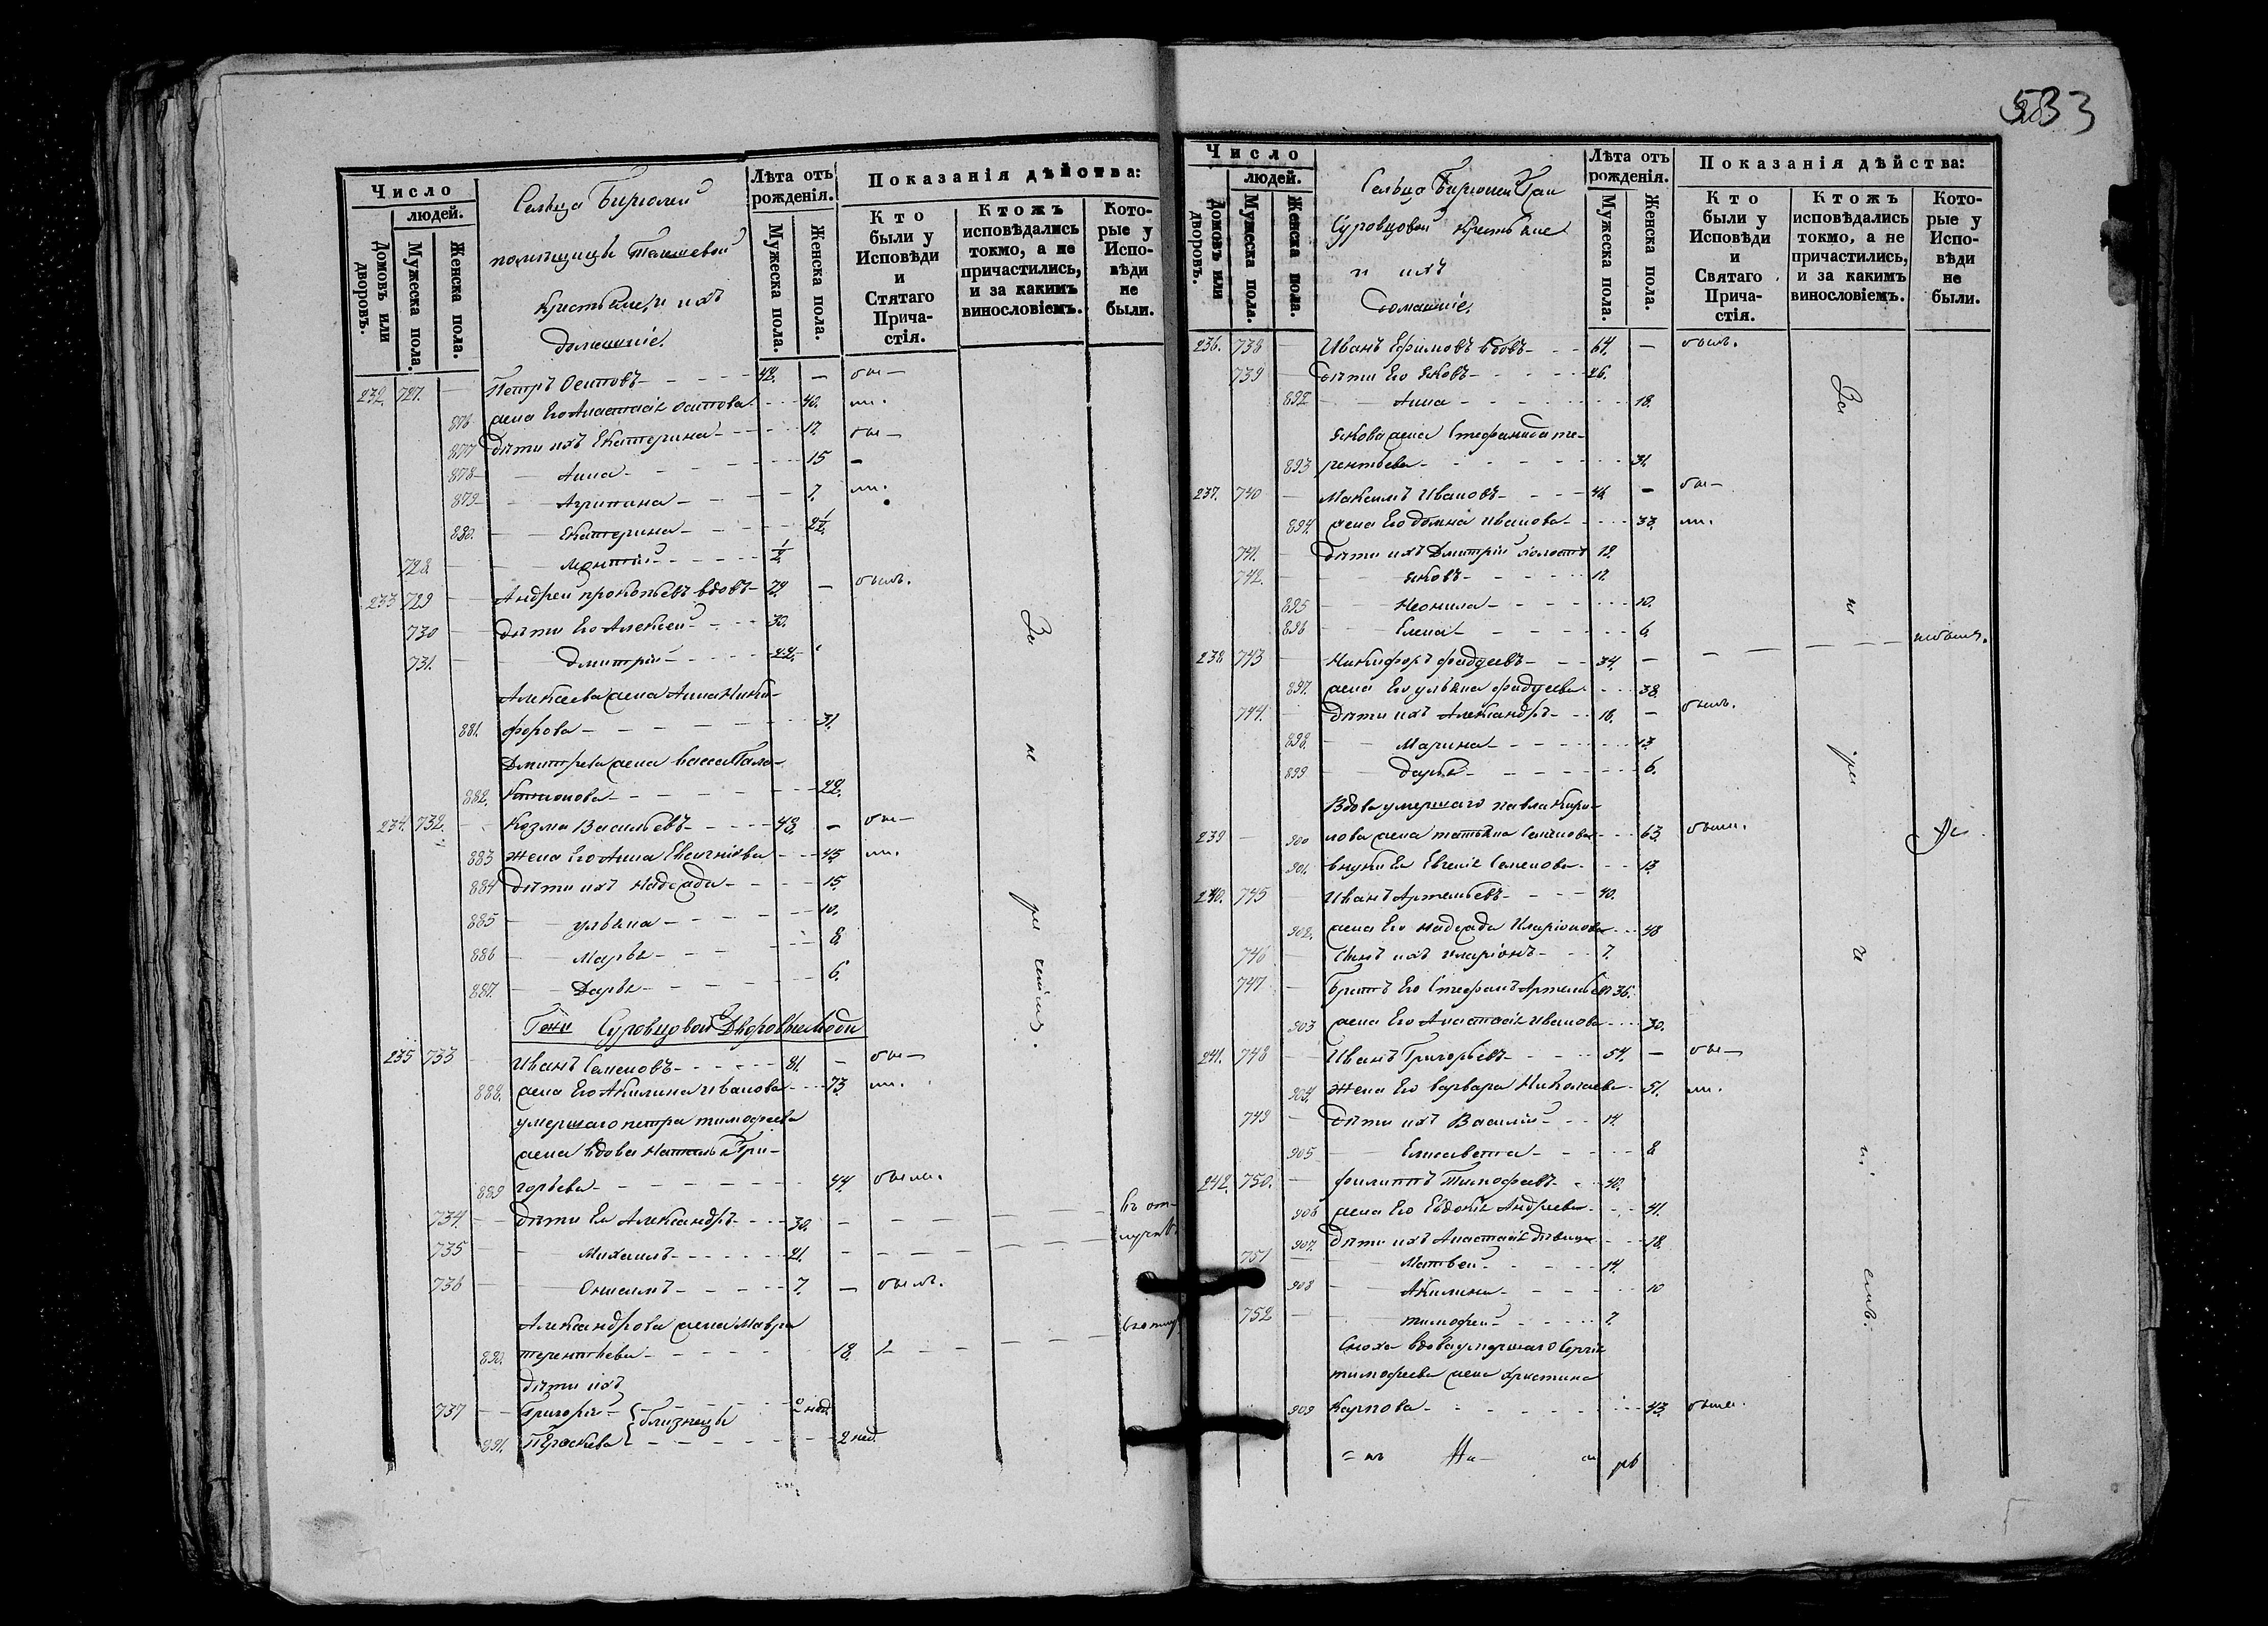 533
Число
людей.
Домовъ или дворовъ.
Мужеска пола.
Женска пола.
Сельца Бирюлей
помѣщицы
Крестьяне, и ихъ
домашніе.
Лѣта отъ рожденія.
Мужеска пола.
Женска пола.
Показанія дѣйства:
Кто были у Исповѣди и Стятаго Прича-стія.
Ктожъ исповѣдались токмо, а не причастились, и за какимъ винословіемъ.
Кото-рые у Испо-вѣди не были.
232. 727. Петръ Осиповъ 42. — бы—
876 жена Его Анастасія Осипова 40. ли.
877 дѣти ихъ Екатерина 17. бы—
878 Анна 15 —
879 Агрипина 7. ли.
880. Екатерина 2½
728. ½
233 729 Андрей Прокопьевъ вдовъ 72. — былъ.
730 дѣти Его Алексей 30.
731. Дмитрій 22.
Алексеева жена Анна Ники-
881. форова 31.
Дмитрева жена Васса
882. 22.
234. 732. Козма Васильевъ 48. — бы—
883 жена Его Анна 45 ли.
884 дѣти ихъ Надежда 15.
885 Ульяна 10.
886 Марья 8.
887. Дарья 6.
Гжи Суровцовой Дворовые люди
235 733 Иванъ Семеновъ 81. — бы—
888. жена Его Акилина Иванова 73 ли.
умершаго Петра Тимофеева
жена вдова Наталья Гри-
889 горьева 44. была.
734. дѣти Ея Александръ 30. — въ от-
735 Михаилъ 21. — лучкѣ
736 Онисимъ 7. — былъ.
Александрова жена Мавра
890. Терентьева 18.
дѣти ихъ
737 Григорій близнецы 2 нед.
891. Параскева 2 нед.
За
ма
ло
Число
людей.
Домовъ или дворовъ.
Мужеска пола.
Женска пола.
Сельца Бирюлей Гжи
Суровцовой Крестьяне
и ихъ
домашніе.
Лѣта отъ рожденія.
Мужеска пола.
Женска пола.
Показанія дѣйства:
Кто были у Исповѣди и Святаго Прича-стія.
Ктожъ исповѣдались токмо, а не причастились, и за какимъ винословіемъ.
Кото-рые у Испо-вѣди не были.
236. 738 Иванъ Ефимовъ вдовъ 64. — былъ.
739 дѣти Его Яковъ 26.
892 Анна 18.
Якова жена Стефанида Те-
893 рентьева 31.
237. 740 Максимъ Ивановъ 46. — бы—
894. жена Его Домна Иванова 33. ли.
741. дѣти ихъ Дмитрій холостъ 19.
742. Яковъ 17.
895 Неонила 10.
896 Елена 6.
238 743 Никифоръ Фадѣевъ 34. — небылъ.
897. жена Его Ульяна Фадѣева 38.
744. дѣти ихъ Александръ 18. — былъ.
898. Марина 13.
899 Дарья 6.
Вдова умершаго Павла Киро-
239 900 нова жена Татьяна Семенова 63. была.
901. внука Ея Евгенія Семенова 13.
240. 745 Иванъ Артемьевъ 40.
902. жена Его Надежда Иларіонова 48
746 сынъ ихъ Иларіонъ 7.
747 братъ Его Стефанъ Артемьевъ 36.
903 жена Его Анастасія Иванова 30.
241. 748 Иванъ Григорьевъ 54. — бы—
904. жена Его Варвара Николаева 51. ли.
749 дѣти ихъ Василій 14.
905 Елисавета 8
242. 750. Филиппъ Тимофеевъ 40.
906 жена Его Евдокія Андреева 41.
907. дѣти ихъ Анастасія дѣвица 18.
751 Матвей 14.
908 Акилина 10
752 Тимофей 7.
Сноха вдова умершаго Сергія
Тимофеева жена Христина
909 Карпова 43. была.